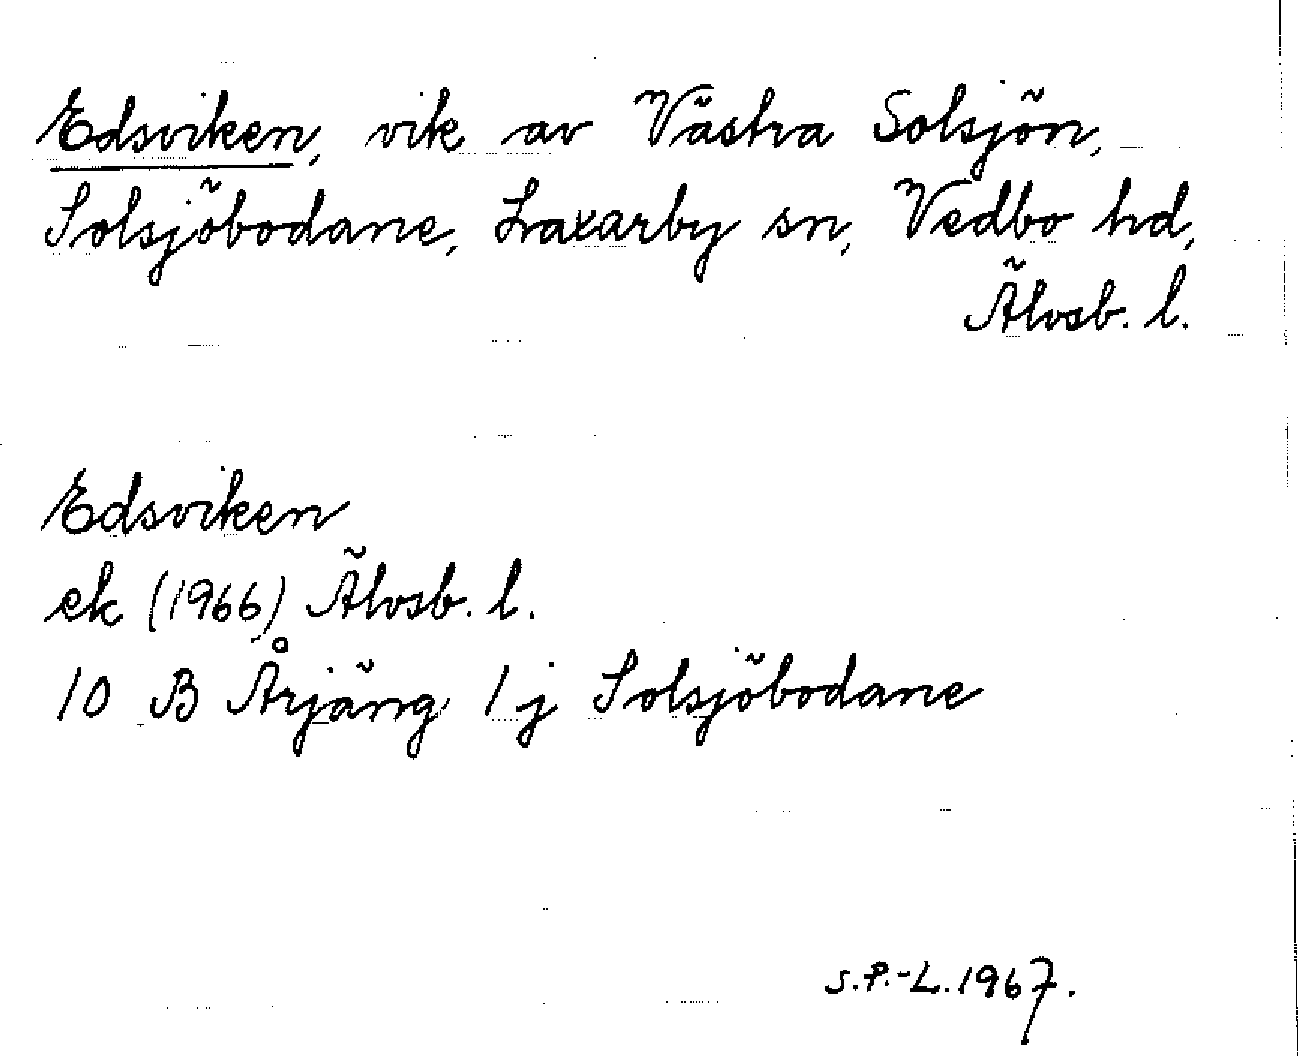 Edsviken, vik av Västra Solsjön,
Solsjöbodane, Laxarby sn, Vedbo hd,
Älvsb. l.
Edsviken
ek (1966) Älvsb. l.
10 B Årjäng 1 j Solsjöbodane
S.P.-L. 1967.